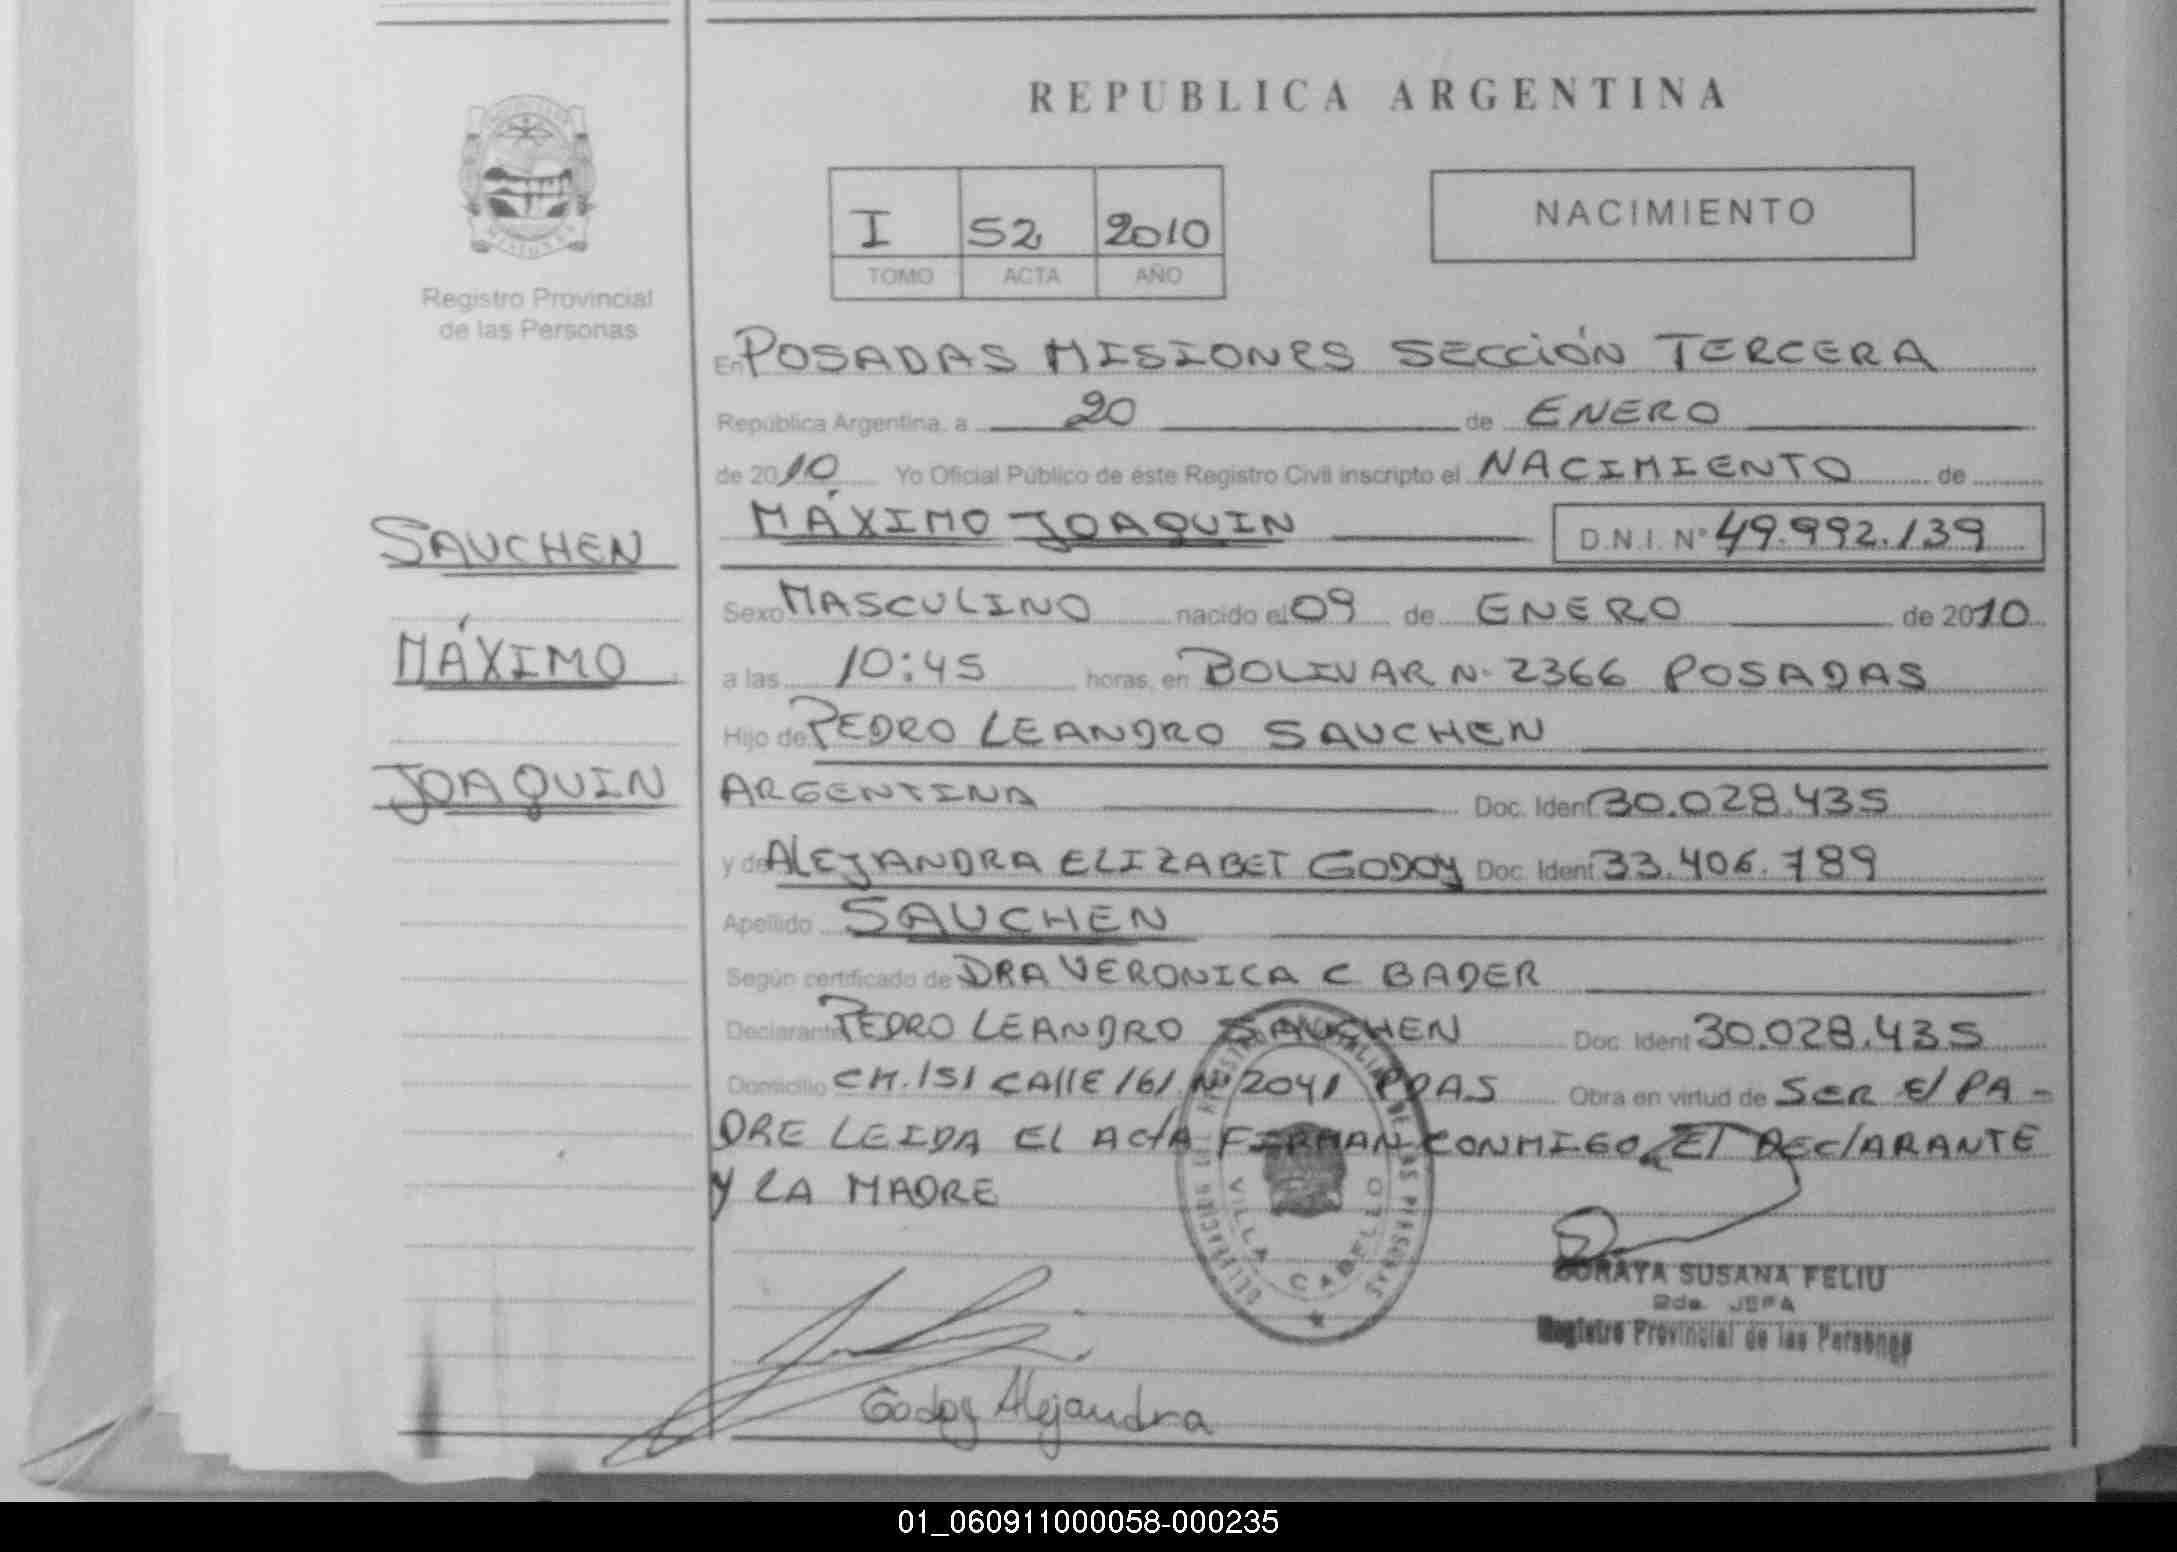 REPUBLICA ARGENTINA
I 52 2010
TOMO ACTA AÑO
NACIMIENTO
Registro Provincial
de las Personas
SAUCHEN
MÁXIMO
JOAQUIN
En POSADAS MISIONES SECCIÓN TERCERA
República Argentina, a 20 de ENERO
de 2010 Yo Oficial Público de éste Registro Civil inscripto el NACIMIENTO de
MÁXIMO JOAQUIN D.N.I. Nº 49.992.139
Sexo MASCULINO nacido el 09 de ENERO de 2010
a las 10:45 horas, en BOLIVAR N. 2366 POSADAS
Hijo de PEDRO LEANDRO SAUCHEN
ARGENTINA Doc. Ident 30.028.435
y de ALEJANDRA ELIZABET GODOY Doc. Ident 33.406.789
Apellido SAUCHEN
Según certificado de DRA VERONICA C BADER
Declarante PEDRO LEANDRO SAUCHEN Doc. Ident 30.028.435
Domicilio CH. 151 CALLE 161 Nº 2041 PDAS Obra en virtud de SER El PA-
DRE LEIDA EL ACTA FIRMAN CONMIGO, El DEClARANTE
Y LA MADRE
VILLA CABELLO
SORAYA SUSANA FELIU
2da. JEFA
Registro Provincial de las Personas
Godoy Alejandra
01_060911000058-000235